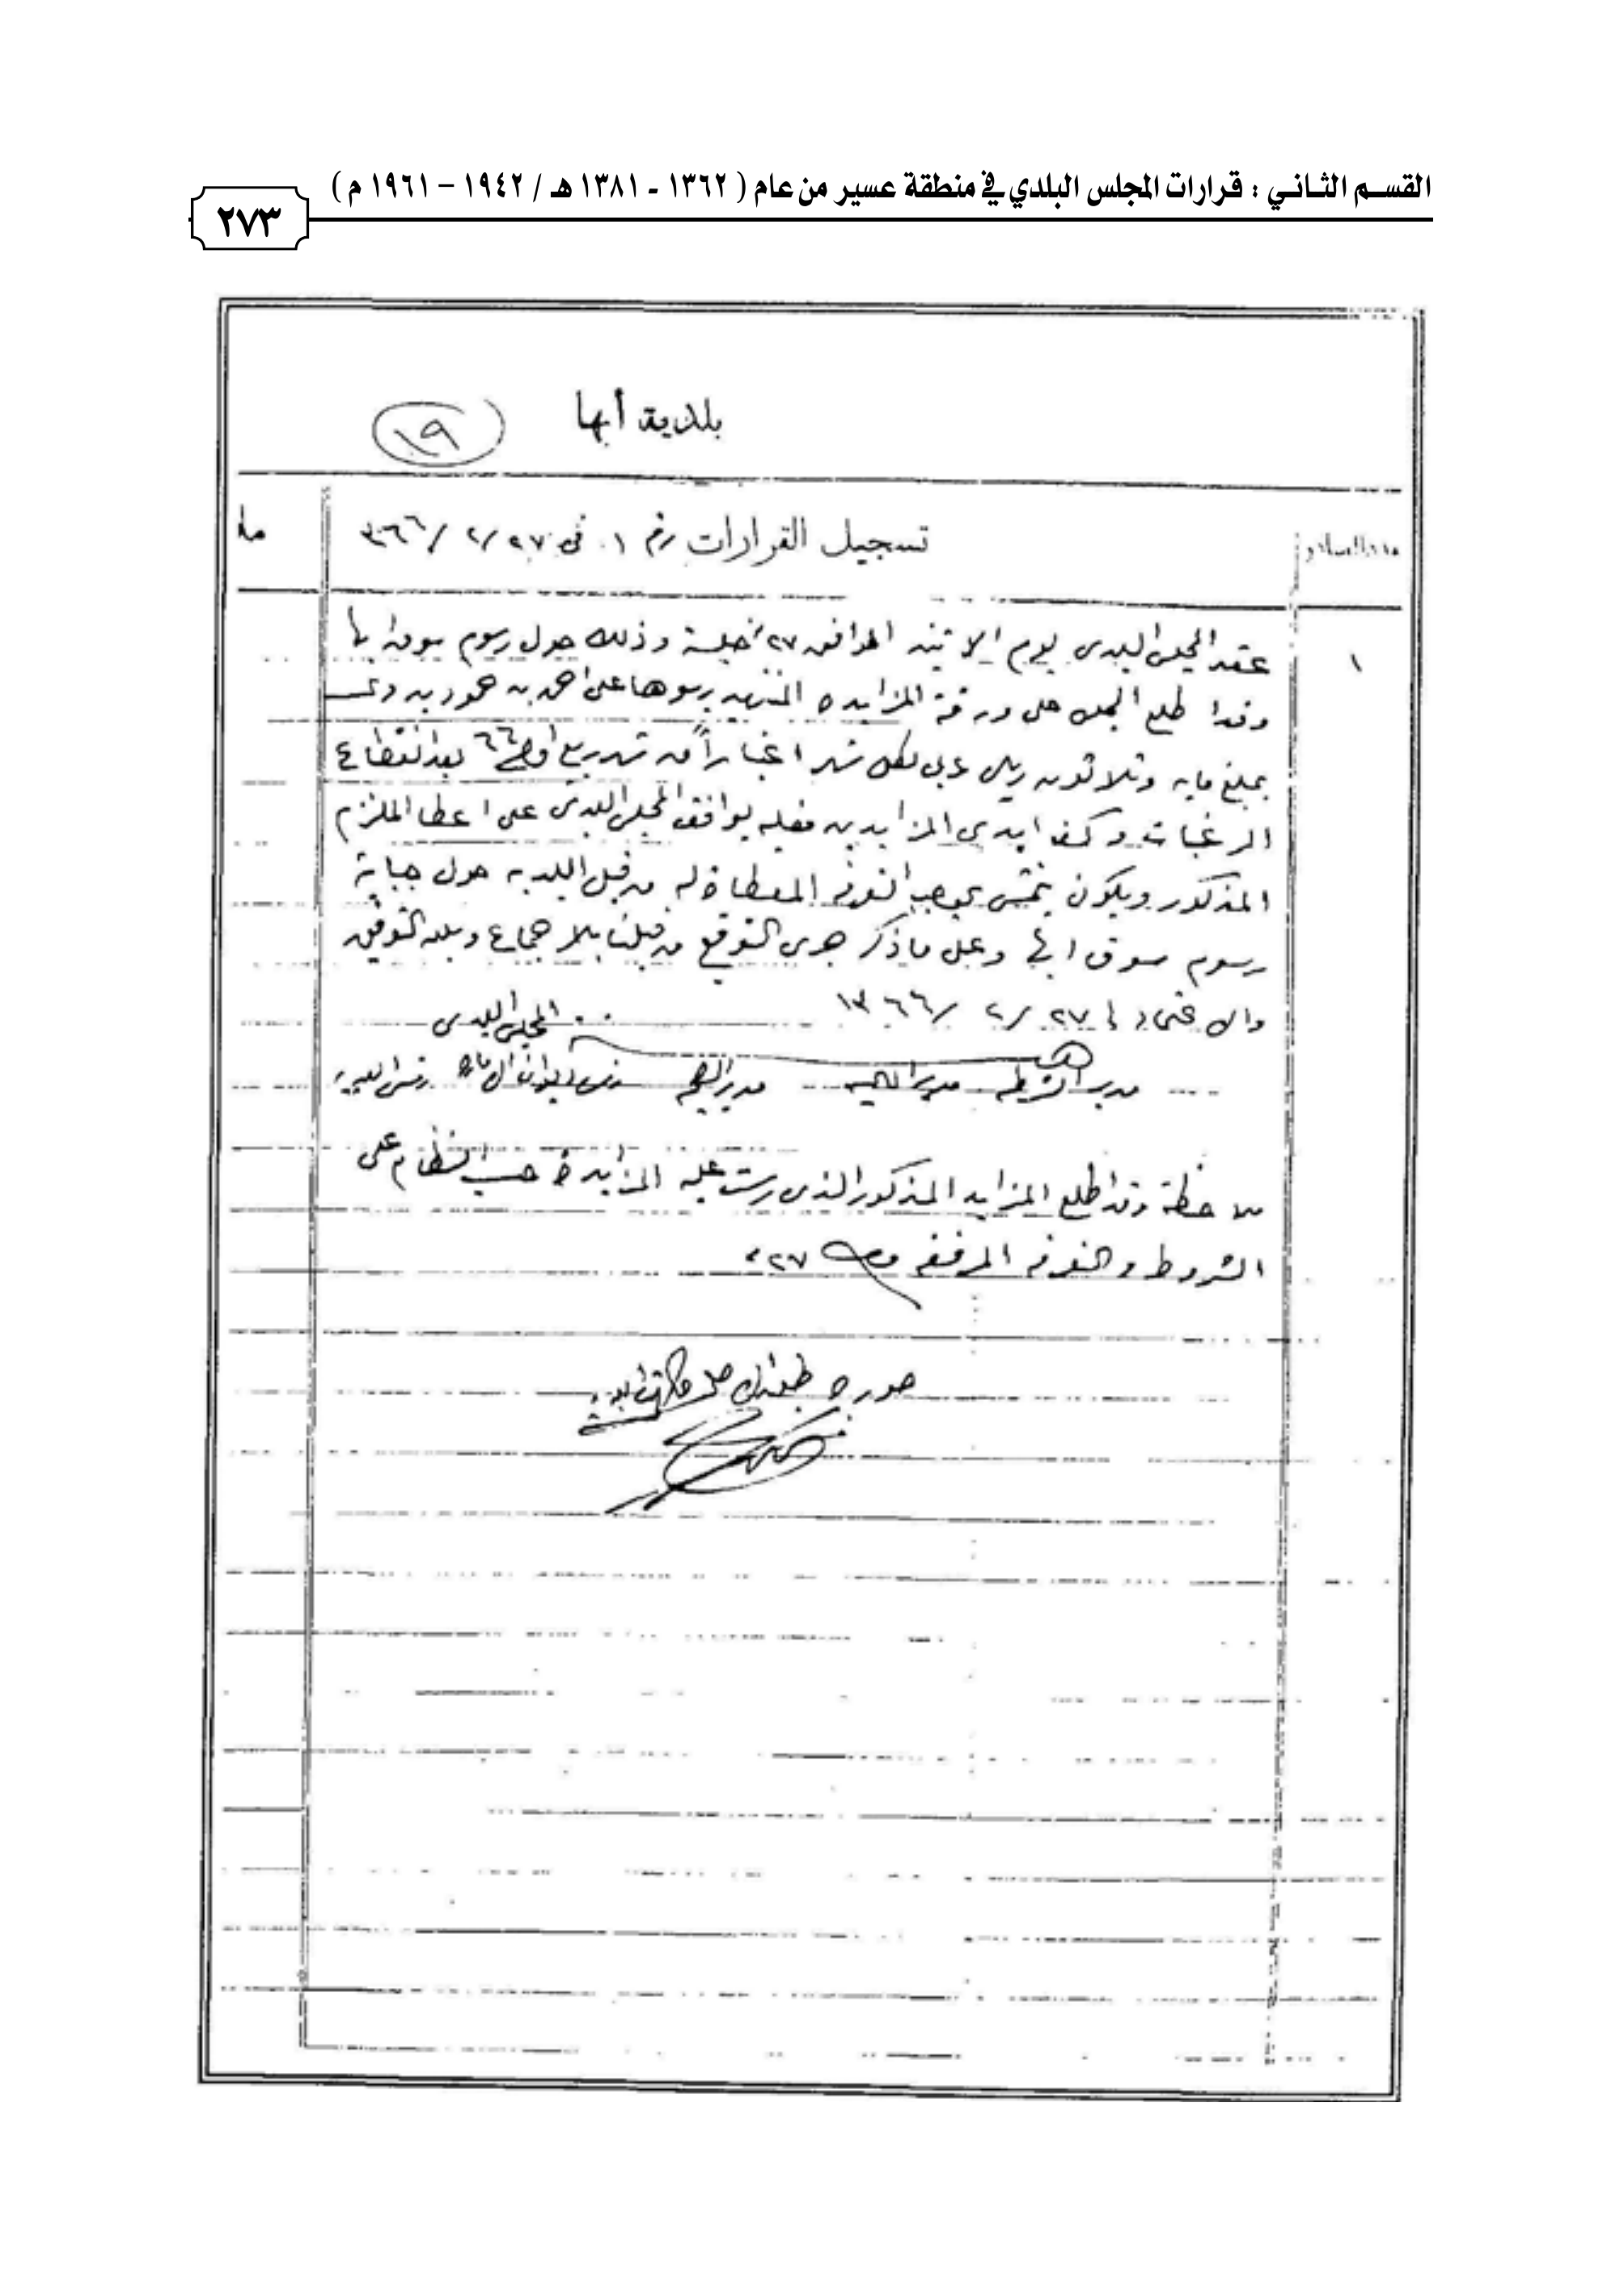 القسم الثاني : قرارات المجلس البلدي في منطقة عسير من عام ( ١٣٦٢ - ١٣٨١ هـ / ١٩٤٢ - ١٩٦١ م )
٢٧٣
بلدية أبها
١٩
تسجيل القرارات رقم ١ في ٢٧/ ٢/ ٣٦٦
عقد المجلس البلدى يوم الاثنين الموافق ٢٧ جلسة وذلك حول رسوم سوق ابها
١
وقد اطلع المجلس على ورقة المزايده المنتهيه برسوها على احمد بن حمود بن
بمبلغ مايه وثلاثون ريال عربي لكل شهر اعتباراً من شهر ربيع اول ٦٦ بعد انقطاع
الرغبات وكف ايدى المزايدين فعليه يوافق المجلس البلدى على اعطا الملتزم
المذكور ويكون يتمشى بموجب التعرفه المعطاة له من قبل البلديه حول جباية
رسوم سوق ابها وعلى ماذكر جرى التوقيع من قبلنا بالاجماع وبالله التوفيق
والاعتماد ٢٧/ ٢/ ١٣٦٦
المجلس البلدى
مدير الشرطه مدير الماليه مدير رئيس البلديه
ملاحظة وقد اطلع المزايد المذكور الذى رست عليه المزايدة حسب النظام على
الشروط والتعرفه المرفقه ٢٧
صوره طبق